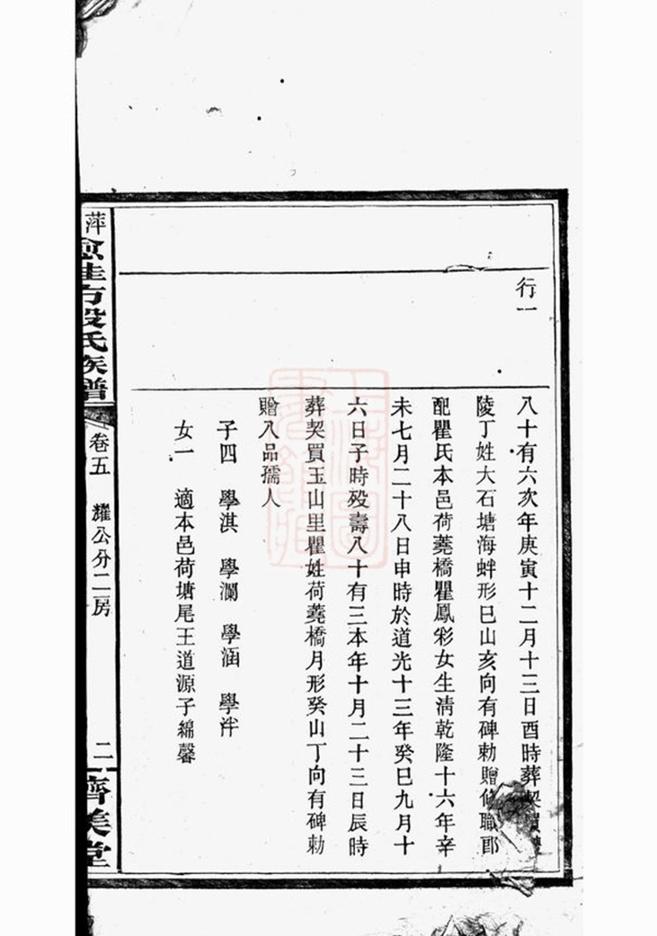 行一
八十有六次年庚寅十二月十三日酉時葬契買
陵丁姓大石塘海蚌形巳山亥向有碑勅贈修職郎
配瞿氏本邑荷蕘橋瞿鳳彩女生清乾隆十六年辛
未七月二十八日申時於道光十三年癸巳九月十
六日子時歿壽八十有三本年十月二十三日辰時
葬契買玉山里瞿姓荷蕘橋月形癸山丁向有碑勅
贈八品孺人
子四 學淇 學瀾 學涵 學泮
女一 適本邑荷塘尾王道源子綿馨
萍
段氏族譜
卷五 耀公分二房
二
濟美堂